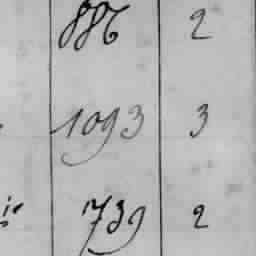 886 2
1093 3
739 2